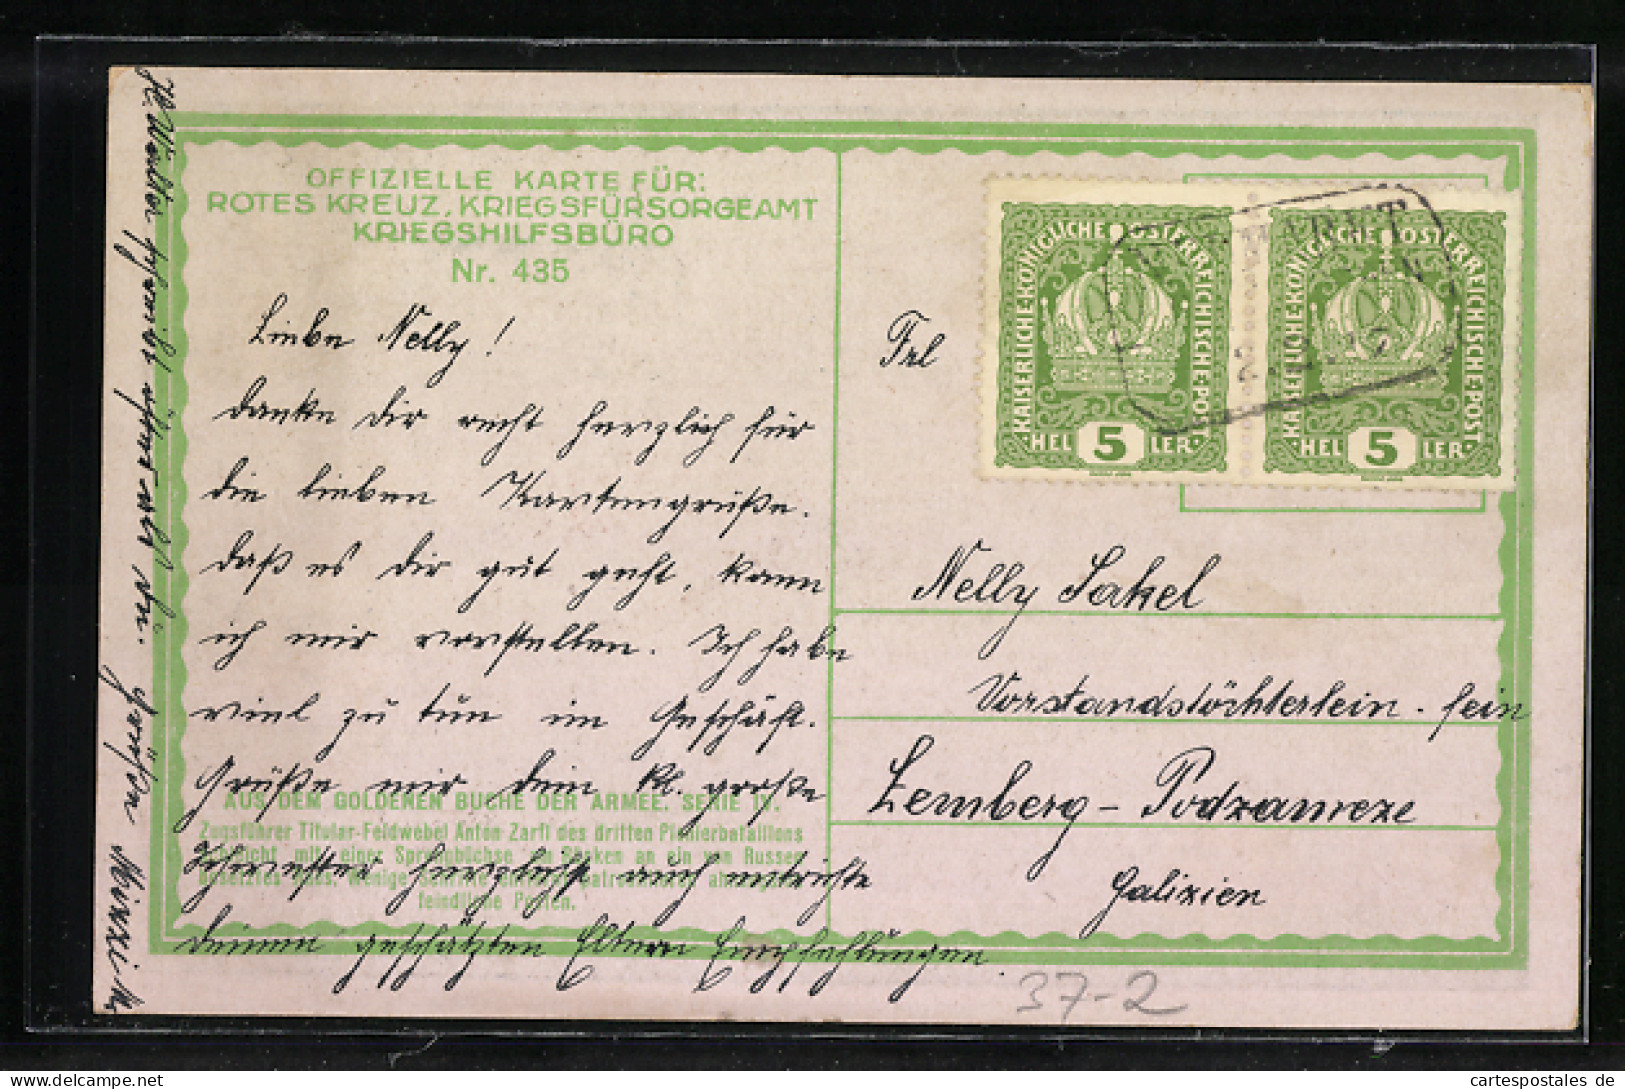 OFFIZIELLE KARTE FÜR:
ROTES KREUZ, KRIEGSFÜRSORGEAMT
KRIEGSHILFSBÜRO
Nr. 435
Liebe Nelly!
Danke dir recht herzlich für
die lieben Kartengrüße.
Daß es dir gut geht, kann
ich mir vorstellen. Ich habe
viel zu tun im Geschäft.
Grüße mir dein kl. große
Schwester herzlichst auch entrichte
deinen geschätzten Eltern Empfehlungen.
AUS DEM GOLDENEN BUCHE DER ARMEE, SERIE IV.
Zugsführer Titular-Feldwebel Anton Zarfl des dritten Pionierbataillons
schleicht mit einer Sprengbüchse am Rücken an ein von Russen
besetztes Haus, wenige Schritte entfernt patrouillieren ahnungslos
feindliche Posten.
Grüße Mizzi M.
KAISERLICHE·KÖNIGLICHE·ÖSTERREICHISCHE·POST
HEL 5 LER
KAISERLICHE·KÖNIGLICHE·ÖSTERREICHISCHE·POST
HEL 5 LER
Frl
Nelly Sakel
Vorstandstöchterlein. fein
Lemberg - Podzamcze
Galizien
37-2
cartespostales de